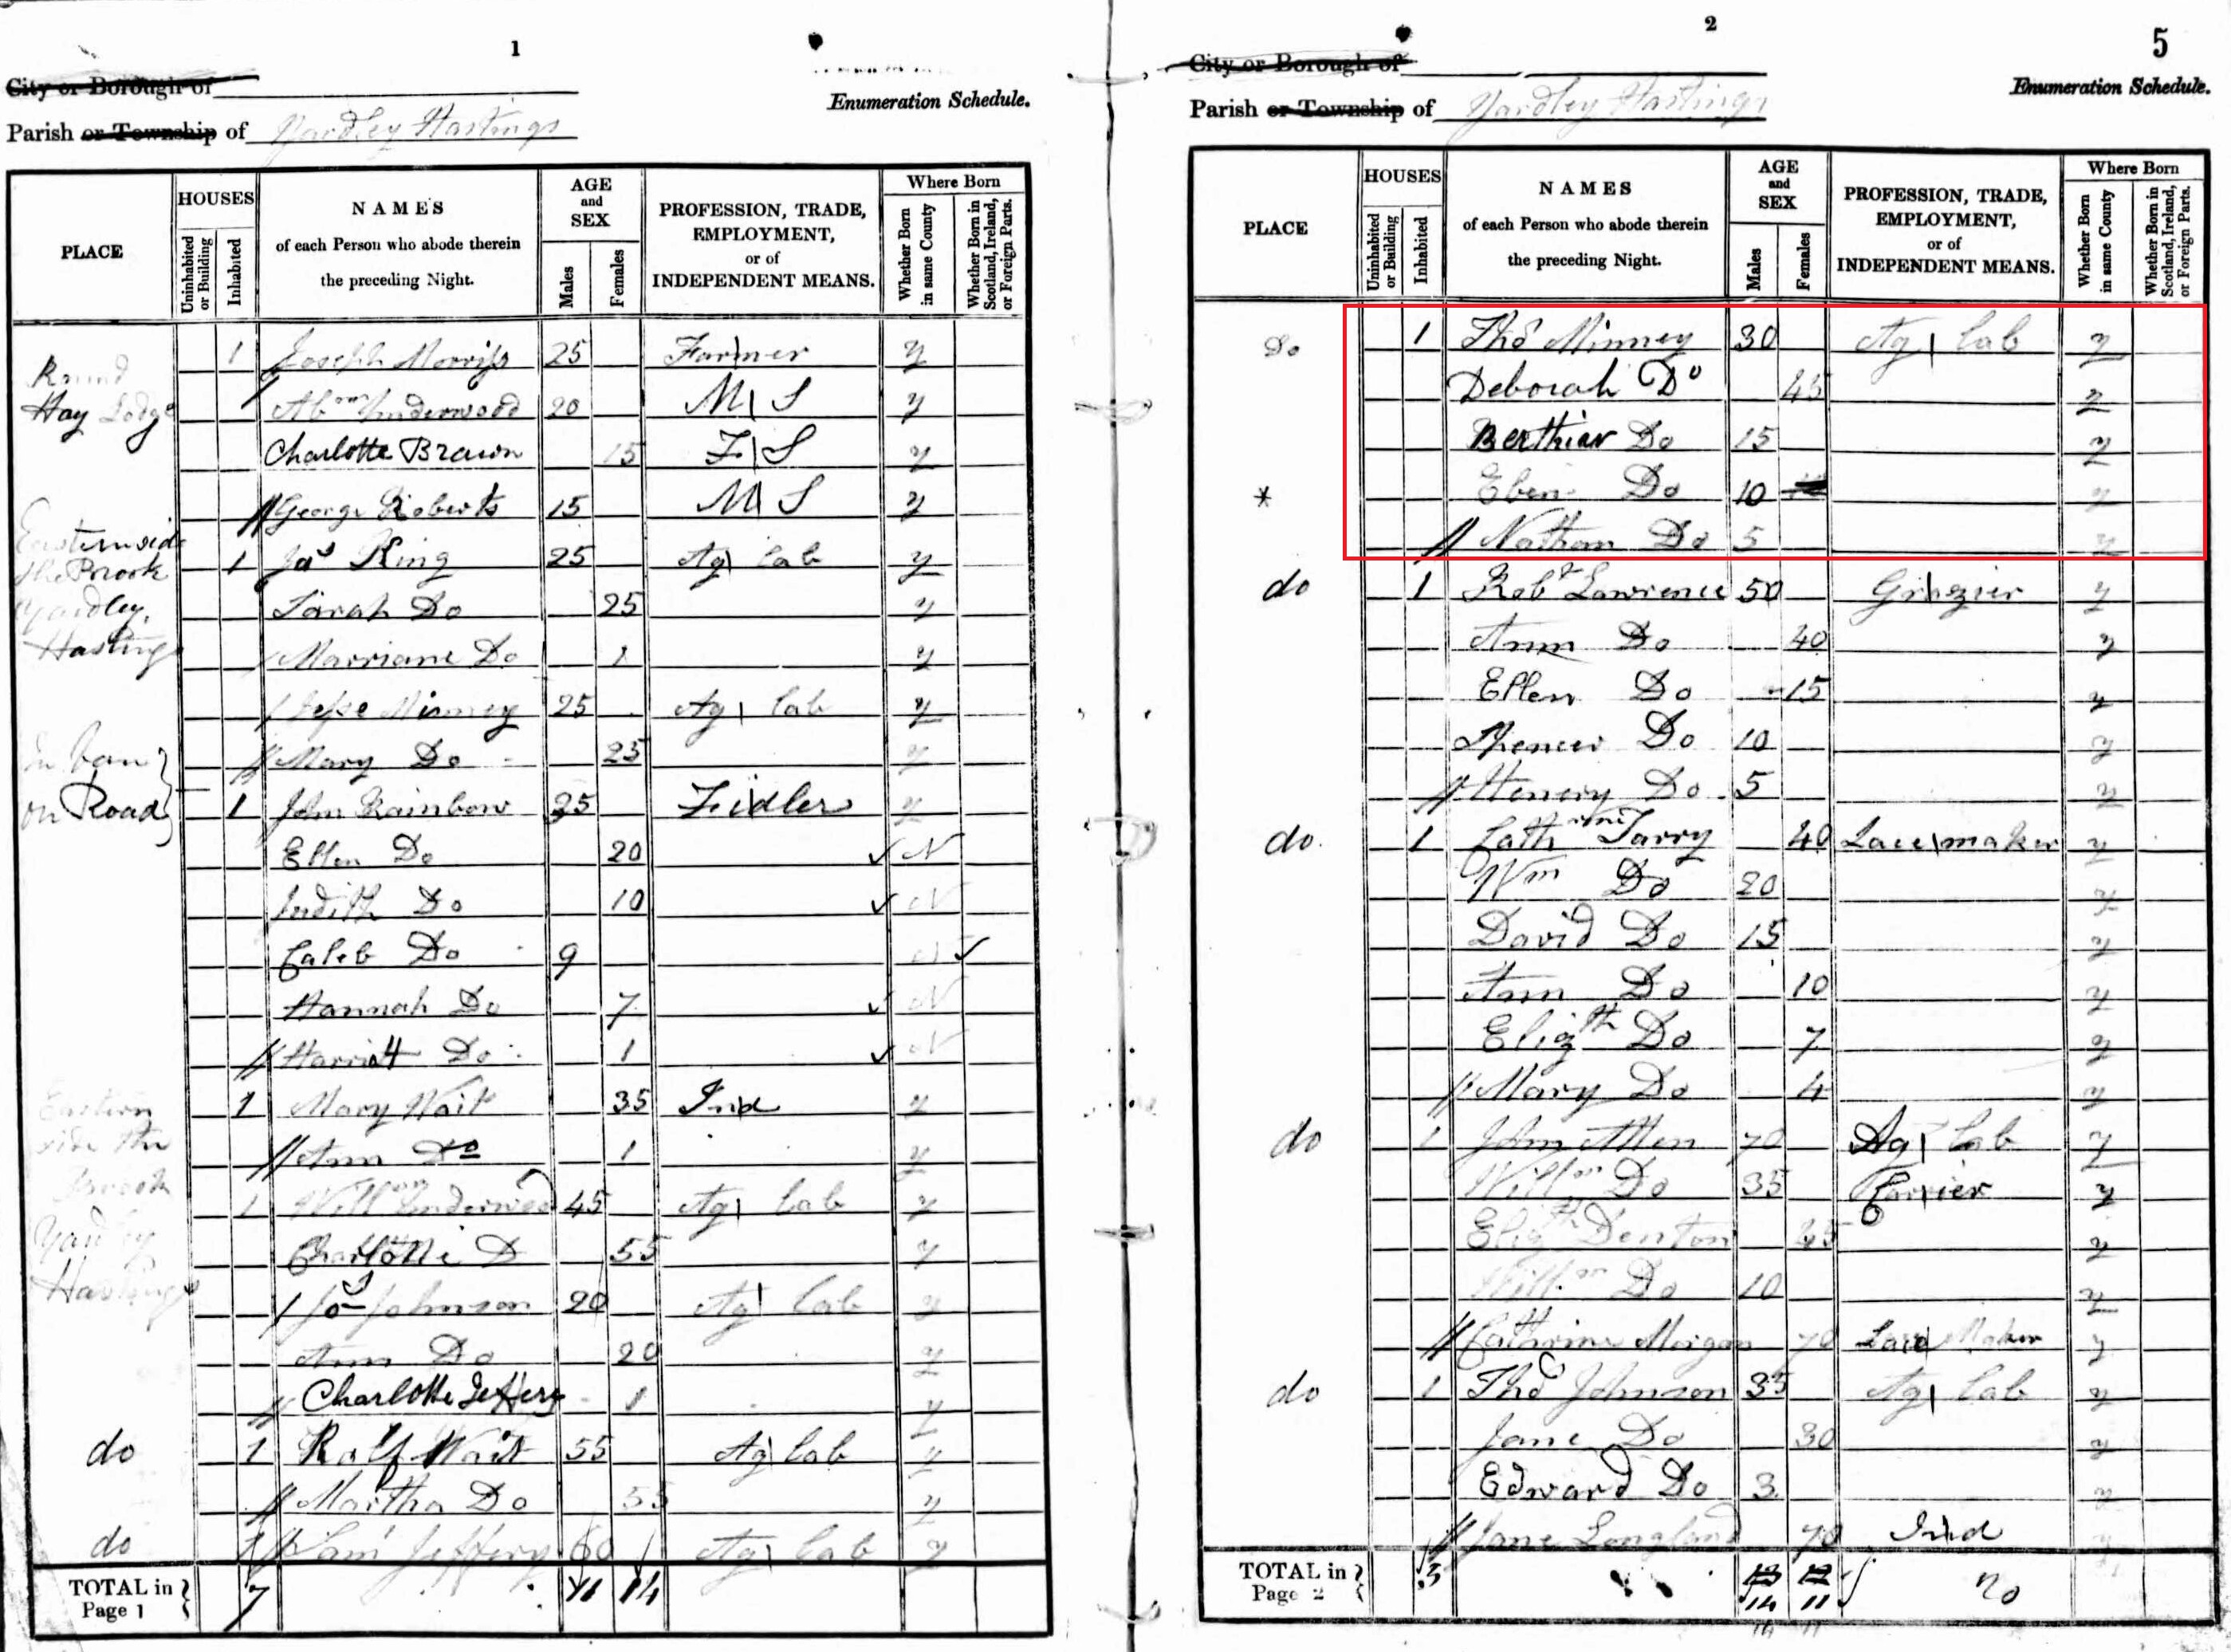 1
City or Borough of
Enumeration Schedule.
Parish or Township of Yardley Hastings
PLACE
HOUSES
Uninhabited or Building
Inhabited
NAMES
of each Person who abode therein
the preceding Night.
AGE
and
SEX
Males
Females
PROFESSION, TRADE,
EMPLOYMENT,
or of
INDEPENDENT MEANS.
Where Born
Whether Born in same County
Whether Born in Scotland, Ireland, or Foreign Parts.
Round Hay Lodge
1 Joseph Morriss 25 Farmer y
Abm Underwood 20 M S y
Charlotte Brawn 15 F S y
George Roberts 15 M S y
Eastern side the Brook Yardley Hastings
1 Jas King 25 Ag lab y
Sarah Do 25 y
Marriane Do 1 y
Jesse Minney 25 Ag lab y
Mary Do 25 y
on Road
1 John Rainbow 35 Fidler y
Ellen Do 20 N
Judith Do 10 N
Caleb Do 9 N
Hannah Do 7 N
Harriot Do 1 N
Eastern side the Brook Yardley Hastings
1 Mary Wait 35 Ind y
Ann Do 1 y
1 Willm Underwood 45 Ag lab y
Charlotte D 55 y
Jos Johnson 20 Ag lab y
Ann Do 20 y
Charlotte Jeffery 1 y
do 1 Ralf Wait 55 Ag lab y
Martha Do 55 y
do 1 Sam Jeffery 60 Ag lab y
TOTAL in Page 1 7 11 14
2
5
City or Borough of
Enumeration Schedule.
Parish or Township of Yardley Hastings
PLACE
HOUSES
Uninhabited or Building
Inhabited
NAMES
of each Person who abode therein
the preceding Night.
AGE
and
SEX
Males
Females
PROFESSION, TRADE,
EMPLOYMENT,
or of
INDEPENDENT MEANS.
Where Born
Whether Born in same County
Whether Born in Scotland, Ireland, or Foreign Parts.
Do 1 Thos Minney 30 Ag lab y
Deborah Do 45 y
Berthier Do 15 y
* Eben Do 10 y
Nathan Do 5 y
do 1 Robt Lawrence 50 Grazier y
Ann Do 40 y
Ellen Do 15 y
Spencer Do 10 y
Henery Do 5 y
do. 1 Cathrine Tarry 40 Lace maker y
Wm Do 20 y
David Do 15 y
Ann Do 10 y
Elizth Do 7 y
Mary Do 4 y
do 1 John Allen 70 Ag lab y
Willm Do 35 Carrier y
Elizth Denton 45 y
Willm Do 10 y
Cathrine Morgan 70 Lace Maker y
do 1 Thos Johnson 35 Ag lab y
Jane Do 30 y
Edward Do 3 y
Jane Longland 70 Ind
TOTAL in Page 2 5 14 11